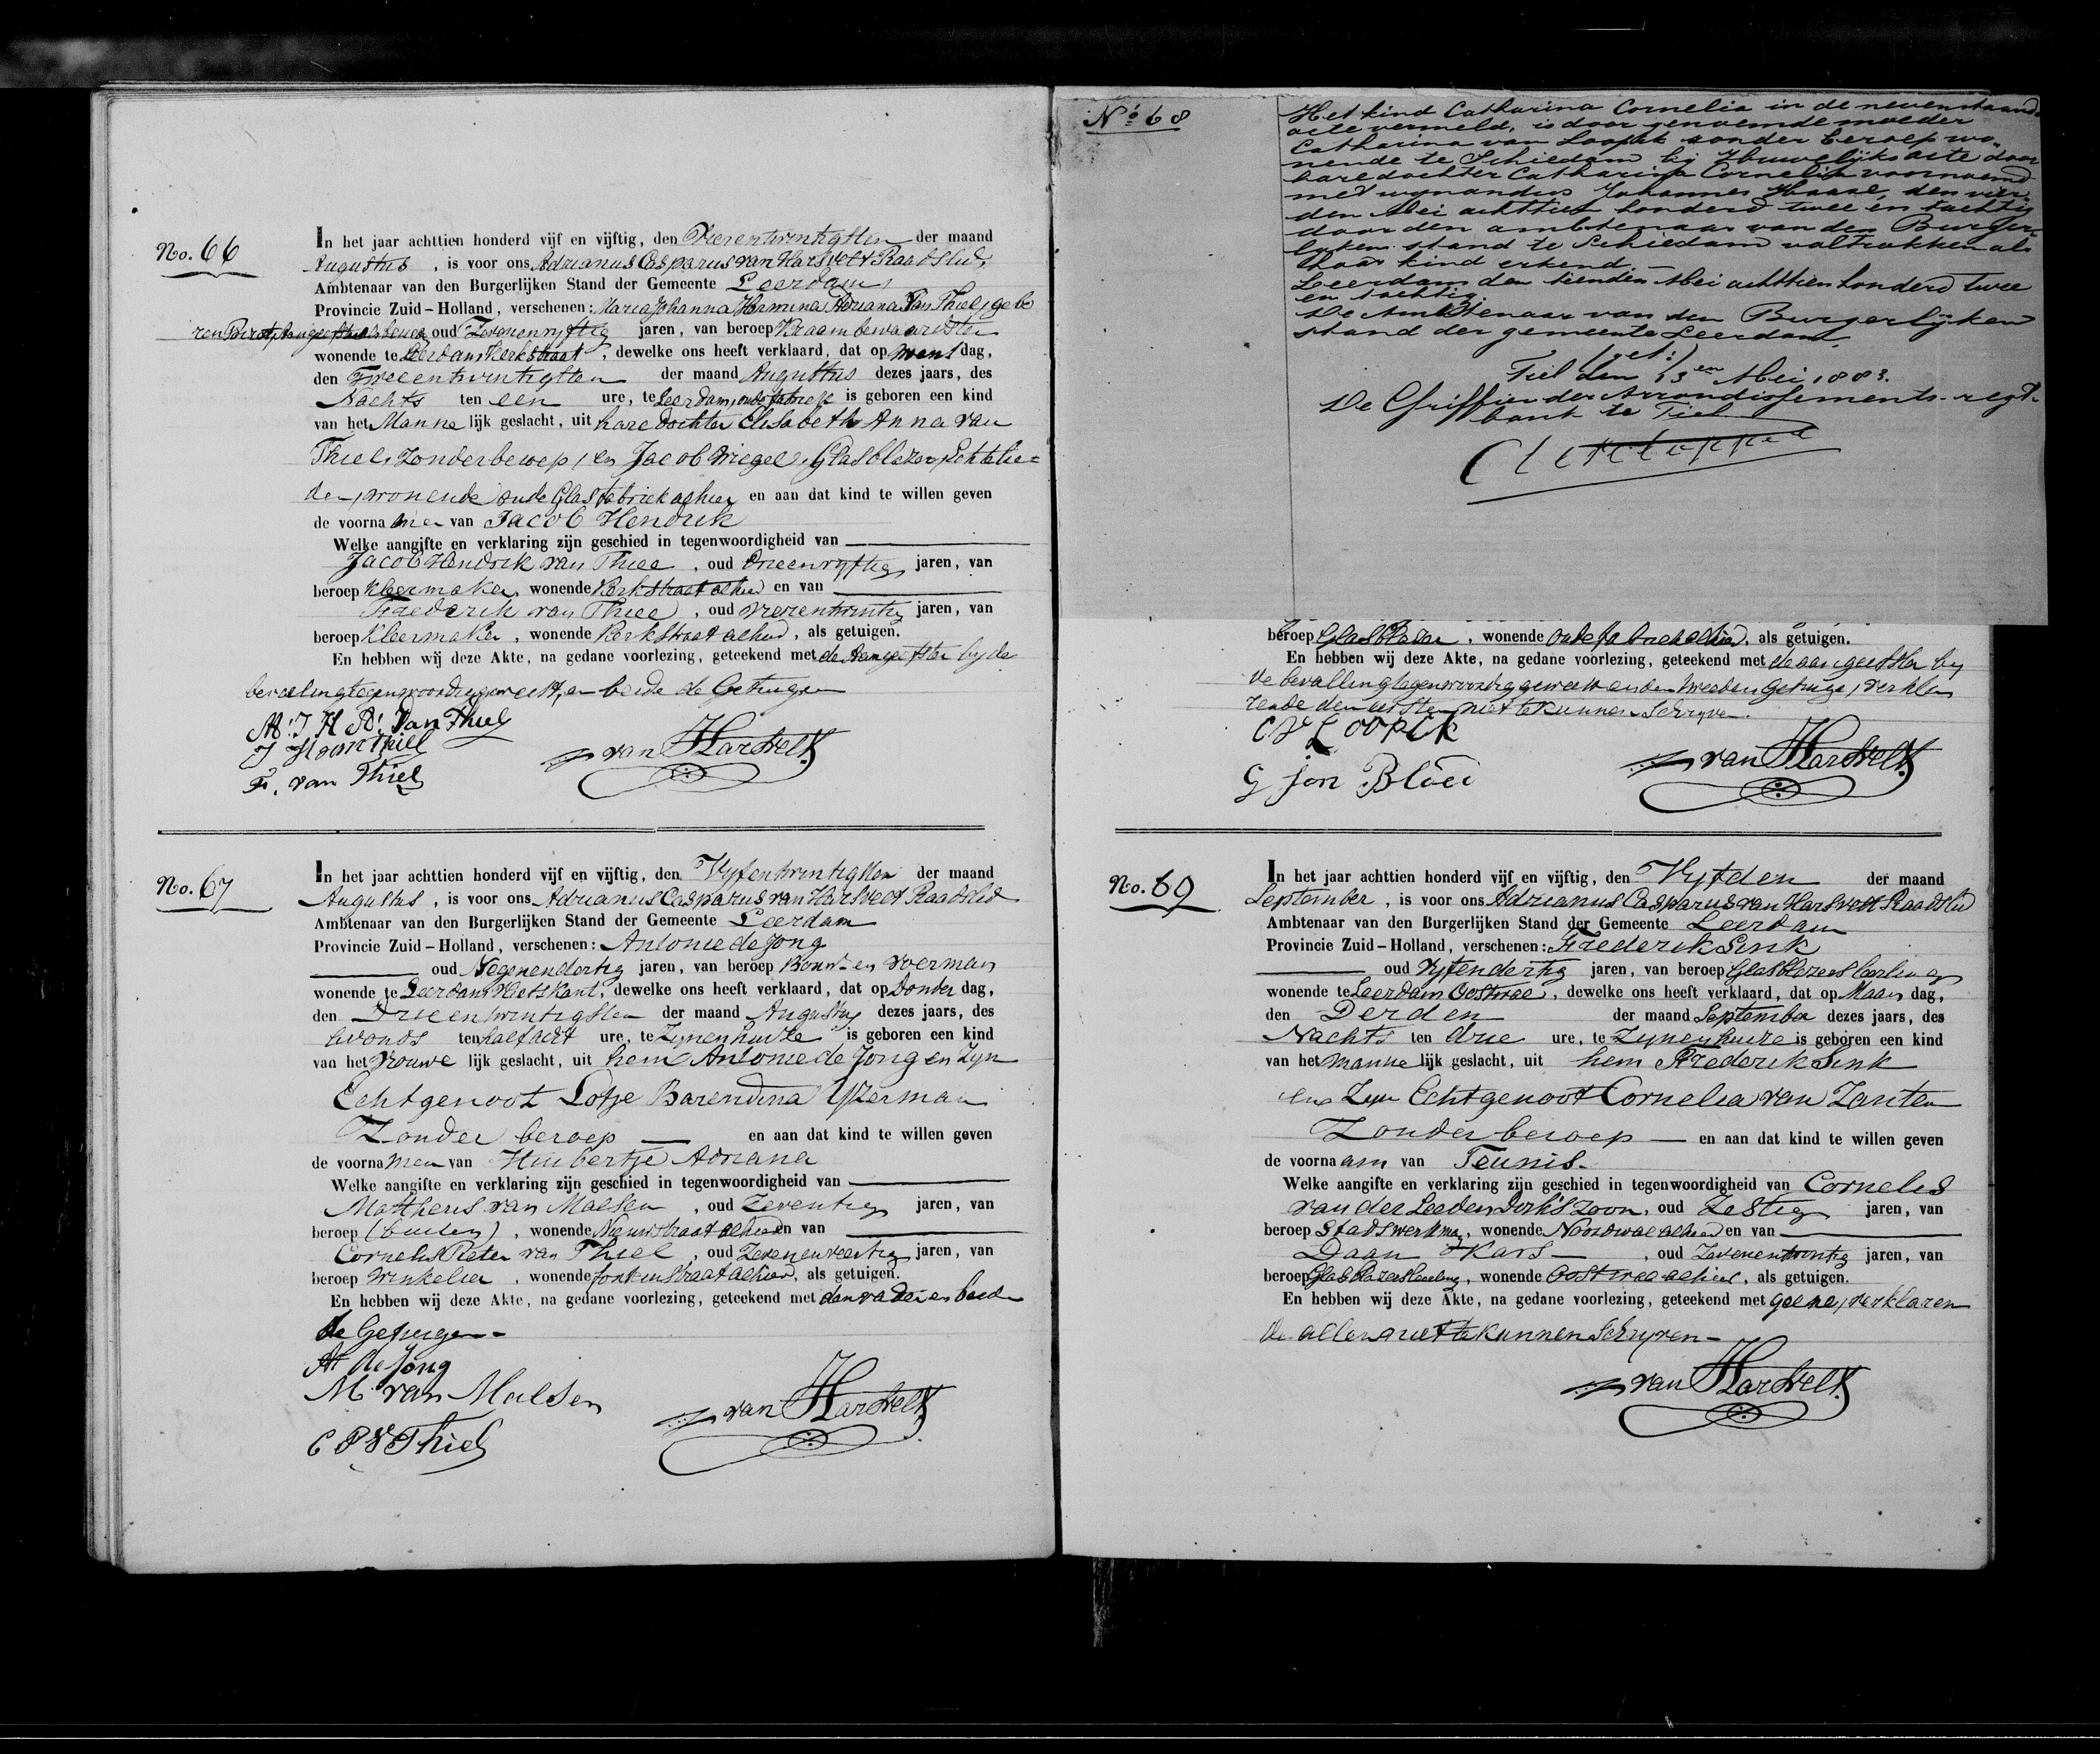 No. 66
In het jaar achttien honderd vijf en vijftig, den Vierentwintigsten der maand
Augustus, is voor ons Adrianus Casparus van Harsvelt Raadslid,
Ambtenaar van den Burgerlijken Stand der Gemeente Leerdam
Provincie Zuid-Holland, verschenen: Maria Johanna Hermina Adriana Van Thiel, gebo
ren oud Zevenenvyftig jaren, van beroep Kraambewaardster
wonende te Leerdam Kerkstraat, dewelke ons heeft verklaard, dat op Woensdag,
den Tweeentwintigsten der maand Augustus dezes jaars, des
Nachts ten een ure, te Leerdam, oude fabriek is geboren een kind
van het Mannelijk geslacht, uit hare dochter Elisabeth Anna van
Thiel, Zonder beroep, en Jacob Griegel, Glasblazer, Echtelie=
den, wonende oude Glasfabriek alhier en aan dat kind te willen geven
de voornamen van Jacob Hendrik
Welke aangifte en verklaring zijn geschied in tegenwoordigheid van
Jacob Hendrik van Thiel, oud Drieenvyftig jaren, van
beroep Kleermaker, wonende Kerkstraat alhier en van
Frederik van Thiel, oud Vierentwintig jaren, van
beroep Kleermaker, wonende Kerkstraat alhier, als getuigen.
En hebben wij deze Akte, na gedane voorlezing, geteekend met de Aangeefster by de
bevalling tegenwoordig geweest, en beide de Getuigen
M: J H A: Van Thiel
J H van Thiel
F. van Thiel
van Harsvelt
No. 67
In het jaar achttien honderd vijf en vijftig, den Vyfentwintigsten der maand
Augustus, is voor ons Adrianus Casparus van Harsvelt Raadslid
Ambtenaar van den Burgerlijken Stand der Gemeente Leerdam
Provincie Zuid-Holland, verschenen: Antonie de Jong
oud Negenendertig jaren, van beroep Bouw- en Voerman
wonende te Leerdam Vlietskant, dewelke ons heeft verklaard, dat op Donderdag,
den Drieentwintigsten der maand Augustus dezes jaars, des
avonds ten half acht ure, te Zynen huize is geboren een kind
van het Vrouwelijk geslacht, uit hem Antonie de Jong en Zyn
Echtgenoot Lotje Barendina Yzerman
Zonder beroep en aan dat kind te willen geven
de voornamen van Huibertje Adriana
Welke aangifte en verklaring zijn geschied in tegenwoordigheid van
Mattheus van Malsen, oud Zeventig jaren, van
beroep (buiten), wonende Nieuwstraat alhier en van
Cornelis Pieter van Thiel, oud Zevenenveertig jaren, van
beroep Winkelier, wonende Fonteinstraat alhier, als getuigen.
En hebben wij deze Akte, na gedane voorlezing, geteekend met den vader en beide
de Getuigen.
A de Jong
M van Malsen
C P V Thiel
van Harsvelt
No 68
Het kind Catharina Cornelia in de nevenstaande
acte vermeld, is door genoemde moeder
Catharina van Loopik zonder beroep wo-
nende te Schiedam bij Huwelijksacte door
hare dochter Catharina Cornelia voornoemd
met Wynandus Johannes Haase, den vier-
den Mei achttien honderd twee en tachtig
door den ambtenaar van den Burger-
lyken stand te Schiedam voltrokken als
haar kind erkend
Leerdam den tienden Mei achttienhonderd twee
en tachtig.
De Ambtenaar van den Burgerlijken
stand der gemeente Leerdam,
(get:)
Tiel den 13en Mei 1883.
De Griffier der Arrondissements-regt-
bank te Tiel
beroep Glasblazer, wonende Oude fabriek alhier, als getuigen.
En hebben wij deze Akte, na gedane voorlezing, geteekend met de aangeefster by
de bevalling tegenwoordig geweest en den tweeden Getuige, verkla
rende den eersten niet te kunnen Schryven.
C V Loopik
G Jon Bloei
van Harsvelt
No. 69
In het jaar achttien honderd vijf en vijftig, den Vyfden der maand
September, is voor ons Adrianus Casparus van Harsvelt Raadslid
Ambtenaar van den Burgerlijken Stand der Gemeente Leerdam
Provincie Zuid-Holland, verschenen: Frederik Sink
oud Vyfendertig jaren, van beroep Glasblazersleerling
wonende te Leerdam Oostwal, dewelke ons heeft verklaard, dat op Maandag,
den Derden der maand September dezes jaars, des
Nachts ten drie ure, te Zynen huize is geboren een kind
van het mannelijk geslacht, uit hem Frederik Sink
en Zyn Echtgenoot Cornelia van Zanten
Zonder beroep en aan dat kind te willen geven
de voornaam van Teunis.
Welke aangifte en verklaring zijn geschied in tegenwoordigheid van Cornelis
van der Leeden Dirkszoon, oud Zestig jaren, van
beroep Stadswerkman, wonende Noordwal alhier en van
Daan Kars, oud Zevenentwintig jaren, van
beroep Glasblazersleerling, wonende Oostwal alhier, als getuigen.
En hebben wij deze Akte, na gedane voorlezing, geteekend met geene, verklaren
de allen niet te kunnen Schryven
van Harsvelt